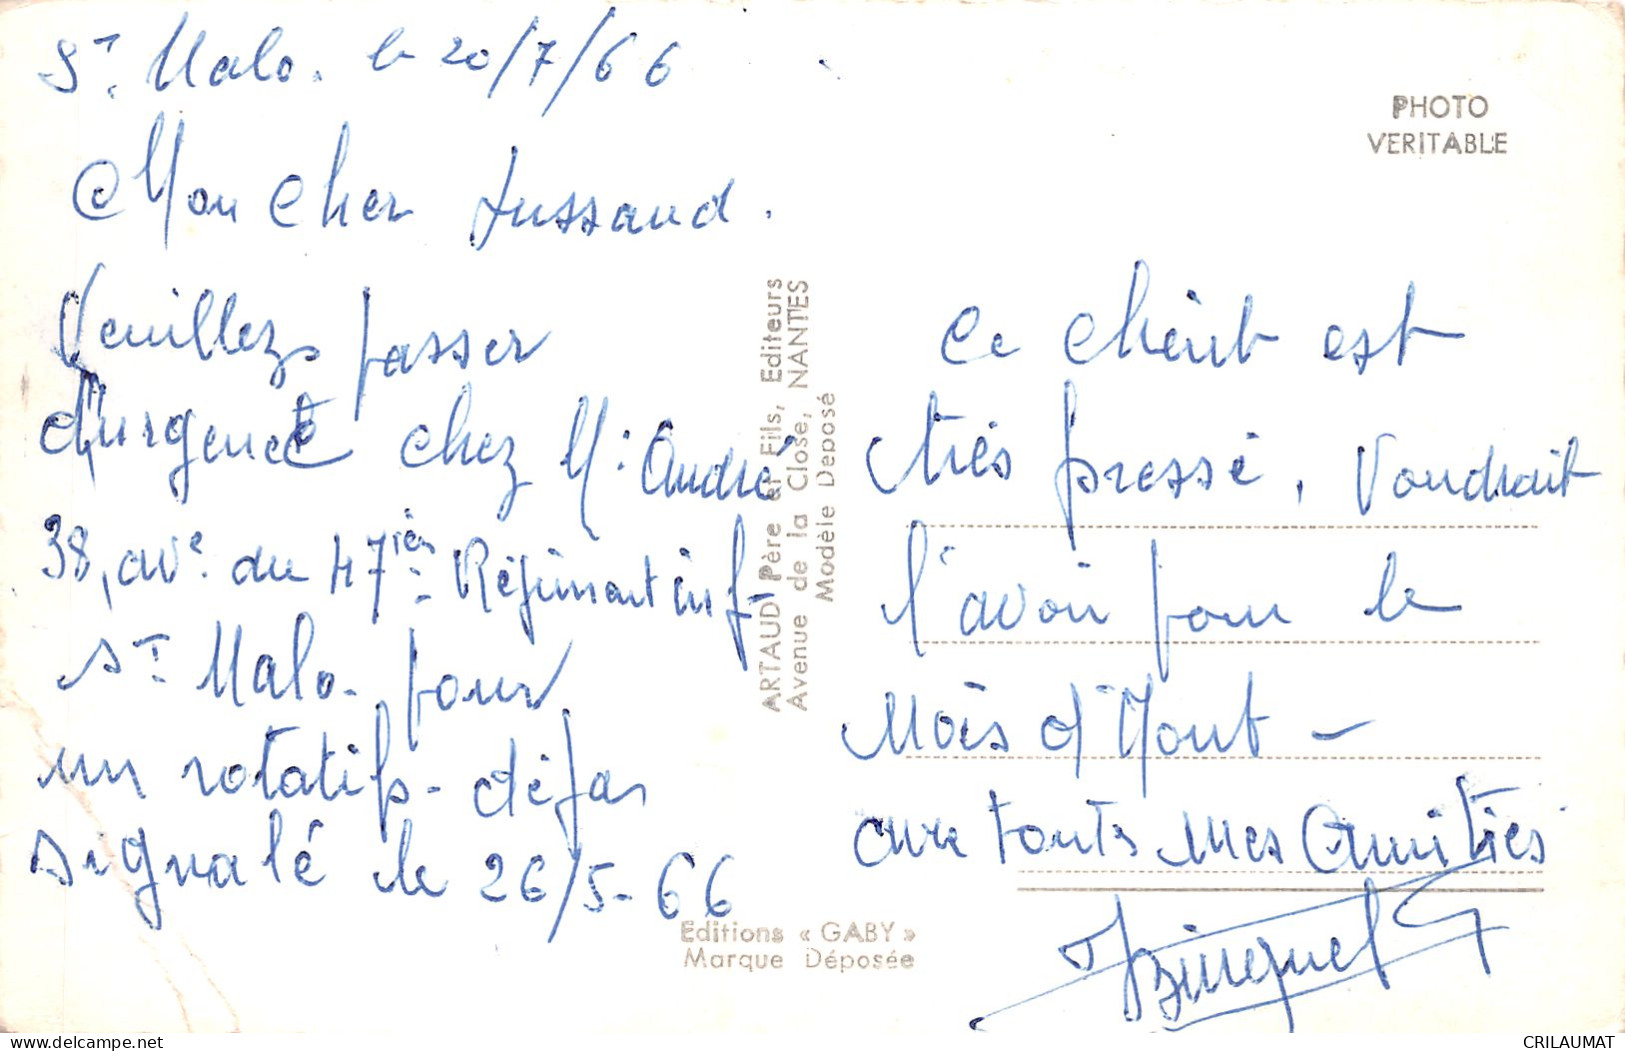 St. Malo. le 20/7/66
Mon Cher Jussaud.
Veuillez passer
d'urgence chez Mr André
38, ave du 47ième Régiment inf-
St Malo. pour
un rotatif - déjà
signalé le 26/5-66
PHOTO
VERITABLE
ARTAUD Père et Fils, Editeurs
Avenue de la Close, NANTES
Modèle Deposé
Editions « GABY »
Marque Déposée
Ce Client est
très pressé, Voudrait
l'avoir pour le
Mois d'Aout -
avec touts mes Amitiés
CRILAUMAT